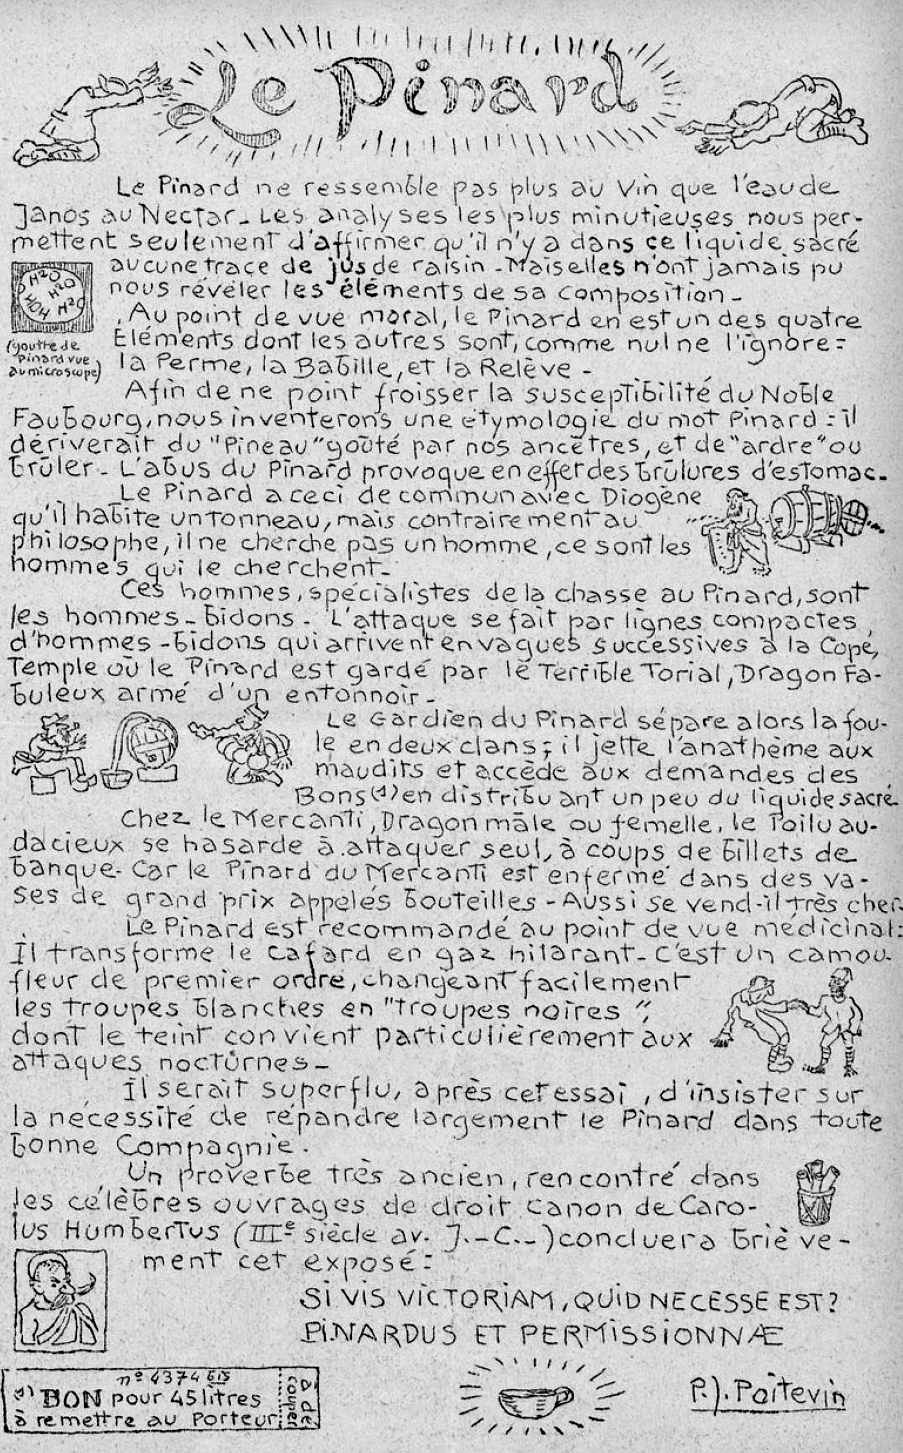 Le Pinard
Le Pinard ne ressemble pas plus au Vin que l'eau de
Janos au Nectar. Les analyses les plus minutieuses nous per-
mettent seulement d'affirmer qu'il n'y a dans ce liquide sacré
aucune trace de jus de raisin - Mais elles n'ont jamais pu
nous révéler les éléments de sa composition -
H2O
H2O
HOH H2O
(goutte de
Pinard vue
au microscope)
Au point de vue moral, le Pinard en est un des quatre
Eléments dont les autres sont, comme nul ne l'ignore :
la Perme, la Babille, et la Relève -
Afin de ne point froisser la susceptibilité du Noble
Faubourg, nous inventerons une étymologie du mot Pinard : il
dériverait du "Pineau" goûté par nos ancêtres, et de "ardre" ou
brûler - L'abus du Pinard provoque en effet des brûlures d'estomac.
Le Pinard a ceci de commun avec Diogène
qu'il habite un tonneau, mais contrairement au
philosophe, il ne cherche pas un homme, ce sont les
hommes qui le cherchent -
Ces hommes, spécialistes de la chasse au Pinard, sont
les hommes-bidons - L'attaque se fait par lignes compactes,
d'hommes-bidons qui arrivent en vagues successives à la Copé,
Temple où le Pinard est gardé par le Terrible Torial, Dragon Fa-
buleux armé d'un entonnoir -
Le Gardien du Pinard sépare alors la fou-
le en deux clans ; il jette l'anathème aux
maudits et accède aux demandes des
Bons (1) en distribuant un peu du liquide sacré
Chez le Mercanti, Dragon mâle ou femelle, le Poilu au-
dacieux se hasarde à attaquer seul, à coups de billets de
banque. Car le Pinard du Mercanti est enfermé dans des va-
ses de grand prix appelés bouteilles - Aussi se vend-il très cher.
Le Pinard est recommandé au point de vue médicinal :
Il transforme le Cafard en gaz hilarant - C'est un camou-
fleur de premier ordre, changeant facilement
les troupes blanches en "troupes noires",
dont le teint convient particulièrement aux
attaques nocturnes -
Il serait superflu, après cet essai, d'insister sur
la nécessité de répandre largement le Pinard dans toute
bonne Compagnie.
Un proverbe très ancien, rencontré dans
les célèbres ouvrages de droit canon de Caro-
lus Humbertus (IIIe siècle av. J.-C.-) concluera briève-
ment cet exposé :
SI VIS VICTORIAM, QUID NECESSE EST ?
PINARDUS ET PERMISSIONNÆ
nº 4374 bis
(1) BON pour 45 litres
à remettre au Porteur
à dé
couper
P.J. Poitevin